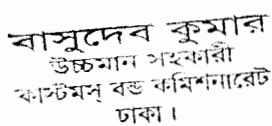 বাসুদেব কুমার
উচ্চমান সহকারী
কাস্টমস্ বন্ড কমিশনারেট
ঢাকা।